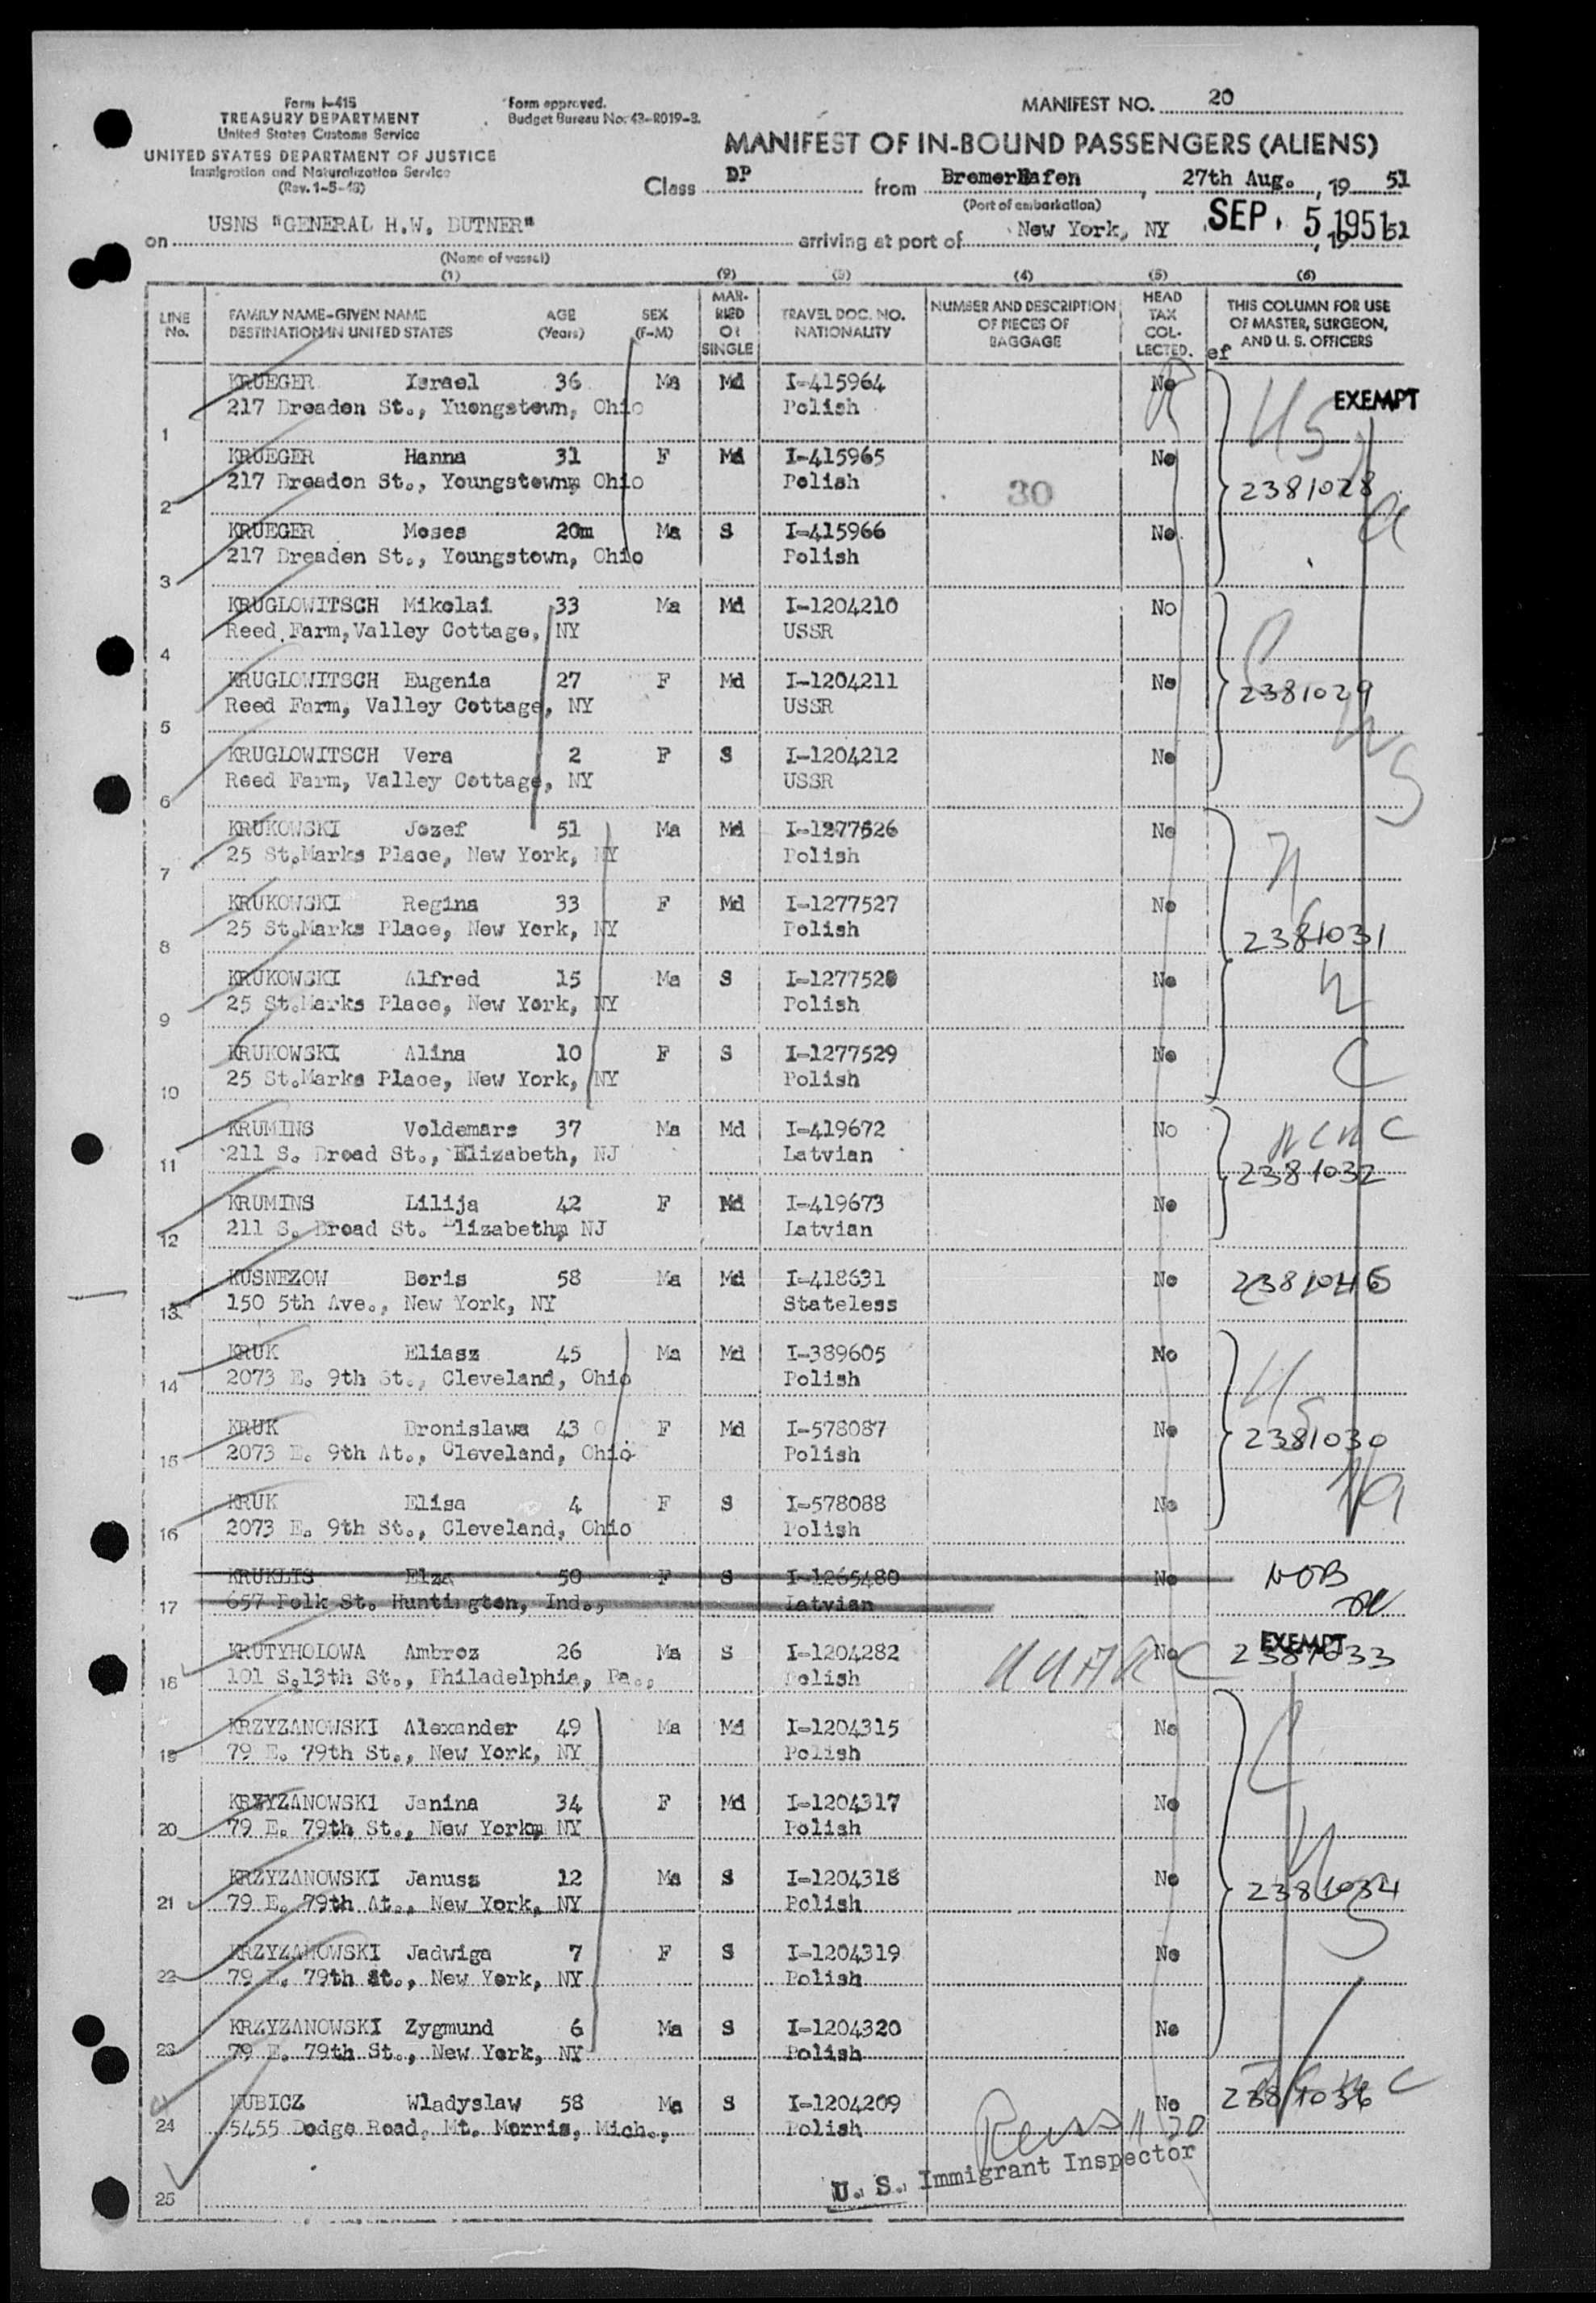 Form I-415
TREASURY DEPARTMENT
United States Customs Service
UNITED STATES DEPARTMENT OF JUSTICE
Immigration and Naturalization Service
(Rev. 1-5-48)
Form approved.
Budget Bureau No. 43-R019-3.
MANIFEST NO. 20
MANIFEST OF IN-BOUND PASSENGERS (ALIENS)
Class DP from BremerHafen, 27th Aug., 19 51
(Port of embarkation)
on USNS "GENERAL H.W. BUTNER" arriving at port of New York, NY SEP. 5 1951, 19 51
(Name of vessel)
(1) (2) (3) (4) (5) (6)
LINE No. FAMILY NAME-GIVEN NAME DESTINATION IN UNITED STATES AGE (Years) SEX (F-M) MARRIED OR SINGLE TRAVEL DOC. NO. NATIONALITY NUMBER AND DESCRIPTION OF PIECES OF BAGGAGE HEAD TAX COLLECTED. THIS COLUMN FOR USE OF MASTER, SURGEON, AND U. S. OFFICERS
ef
KRUEGER Israel 36 Ma Md I-415964 No EXEMPT
1 217 Breaden St., Yuongstown, Ohio Polish
KRUEGER Hanna 31 F Md I-415965 No
2 217 Breaden St., Youngstownm Ohio Polish 30 2381028
KRUEGER Moses 20m Ma S I-415966 No
3 217 Breaden St., Youngstown, Ohio Polish
KRUGLOWITSCH Mikolai 33 Ma Md I-1204210 No
4 Reed Farm, Valley Cottage, NY USSR
KRUGLOWITSCH Eugenia 27 F Md I-1204211 No 2381029
5 Reed Farm, Valley Cottage, NY USSR
KRUGLOWITSCH Vera 2 F S I-1204212 No
6 Reed Farm, Valley Cottage, NY USSR
KRUKOWSKI Jozef 51 Ma Md I-1277526 No
7 25 St.Marks Place, New York, NY Polish
KRUKOWSKI Regina 33 F Md I-1277527 No
8 25 St.Marks Place, New York, NY Polish 2381031
KRUKOWSKI Alfred 15 Ma S I-1277528 No
9 25 St.Marks Place, New York, NY Polish
KRUKOWSKI Alina 10 F S I-1277529 No
10 25 St.Marks Place, New York, NY Polish
KRUMINS Voldemars 37 Ma Md I-419672 No
11 211 S. Broad St., Elizabeth, NJ Latvian 2381032
KRUMINS Lilija 42 F Md I-419673 No
12 211 S. Broad St. Elizabethm NJ Latvian
KUSNEZOW Boris 58 Ma Md I-418631 No 2381046
13 150 5th Ave., New York, NY Stateless
KRUK Eliasz 45 Ma Md I-389605 No
14 2073 E. 9th St., Cleveland, Ohio Polish
KRUK Bronislawa 43 F Md I-578087 No 2381030
15 2073 E. 9th At., Cleveland, Ohio Polish
KRUK Elisa 4 F S I-578088 No
16 2073 E. 9th St., Cleveland, Ohio Polish
KRUKLIS Elza 50 F S I-1265480 No NOB
17 657 Polk St. Huntington, Ind., Latvian
KRUTYHOLOWA Ambroz 26 Ma S I-1204282 No EXEMPT 2381033
18 101 S.13th St., Philadelphia, Pa., Polish
KRZYZANOWSKI Alexander 49 Ma Md I-1204315 No
19 79 E. 79th St., New York, NY Polish
KRZYZANOWSKI Janina 34 F Md I-1204317 No
20 79 E. 79th St., New Yorkm NY Polish
KRZYZANOWSKI Janusz 12 Ma S I-1204318 No 2381034
21 79 E. 79th At., New York, NY Polish
KRZYZANOWSKI Jadwiga 7 F S I-1204319 No
22 79 E. 79th St., New York, NY Polish
KRZYZANOWSKI Zygmund 6 Ma S I-1204320 No
23 79 E. 79th St., New York, NY Polish
KUBICZ Wladyslaw 58 Ma S I-1204209 No 2381036
24 5455 Dodge Road, Mt. Morris, Mich., Polish
U. S. Immigrant Inspector
25